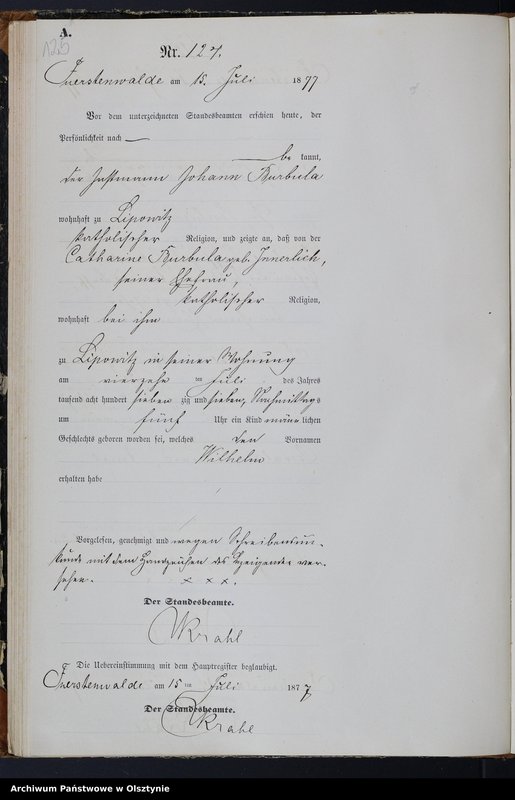 A.
125
Nr. 127.
Fuerstenwalde am 15. Juli 1877
Vor dem unterzeichneten Standesbeamten erschien heute, der
Persönlichkeit nach —
— be kannt,
der Johann Burbula
wohnhaft zu Lipowitz
katholischer Religion, und zeigte an, daß von der
Catharine Burbula geb. Innerlich,
seiner Ehefrau,
katholischer Religion,
wohnhaft bei ihm
zu Lipowitz in seiner Wohnung
am vierzehn ten Juli des Jahres
tausend acht hundert sieben zig und sieben, Nachmittags
um fünf Uhr ein Kind männ lichen
Geschlechts geboren worden sei, welches den Vornamen
Wilhelm
erhalten habe
Vorgelesen, genehmigt und wegen Schreibensun-
kunde mit dem Handzeichen des Anzeigenden ver-
sehen. x x x.
Der Standesbeamte.
Krahl
Die Uebereinstimmung mit dem Hauptregister beglaubigt.
Fuerstenwalde am 15 ten Juli 1877
Der Standesbeamte.
Krahl
Archiwum Państwowe w Olsztynie